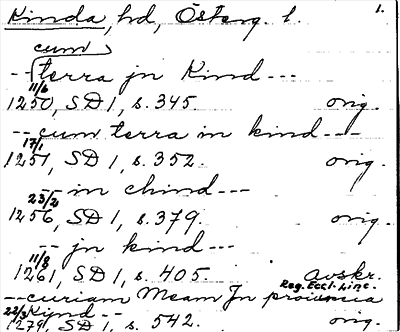 Kinda, hd, Österg. l. 1.
cum
-- terra jn Kind ---
11/6
1250, SD 1, s. 345. orig.
-- cum terra in kind ---
17/1
1251, SD 1, s. 352. orig.
23/2 -- in chind ---
1256, SD 1, s. 379. orig.
-- jn kind ---
11/8
1261, SD 1, s. 405. Avskr.
Reg. Eccl. Linc.
-- curiam Meam Jn prouincia
22/3 Kind --
1279, SD 1, s. 542. orig.